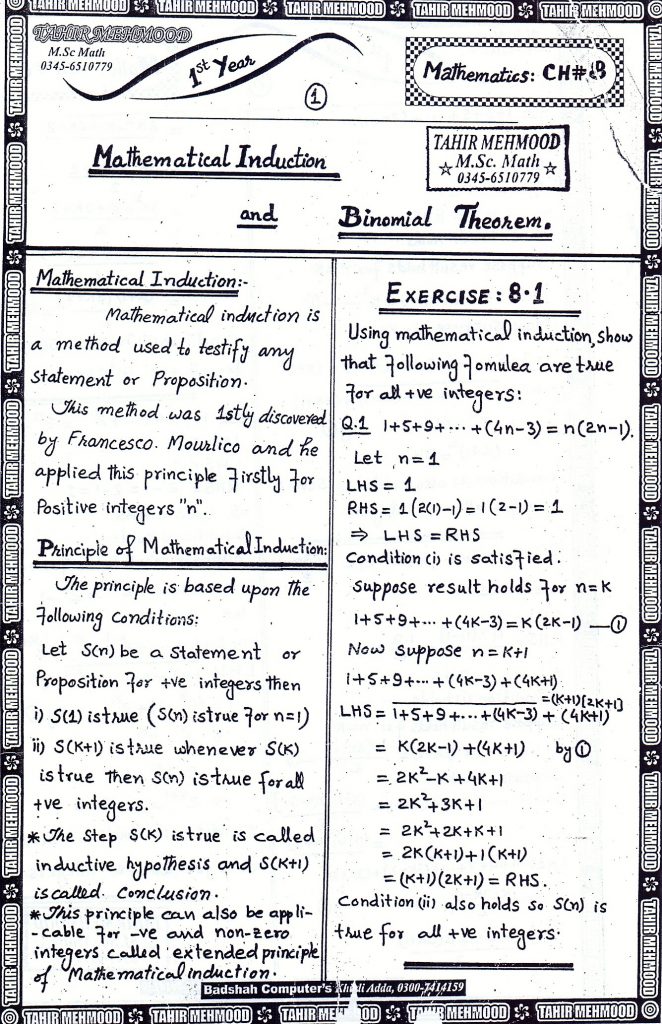 TAHIR MEHMOOD TAHIR MEHMOOD TAHIR MEHMOOD TAHIR MEHMOOD TAHIR MEHMOOD
TAHIR MEHMOOD
M.Sc Math
0345-6510779
1st Year
1
Mathematics: CH#
TAHIR MEHMOOD
M.Sc. Math
0345-6510779
Mathematical Induction
and Binomial Theorem.
Mathematical Induction:-
Mathematical induction is
a method used to testify any
Statement or Proposition.
This method was 1stly discovered
by Francesco. Mourlico and he
applied this principle Firstly For
Positive integers "n".
Principle of Mathematical Induction:
The principle is based upon the
Following Conditions:
Let S(n) be a Statement or
Proposition For +ve integers then
i) S(1) is true (S(n) is true For n=1)
ii) S(K+1) is true whenever S(K)
is true then S(n) is true for all
+ve integers.
*The Step S(K) is true is called
inductive hypothesis and S(K+1)
is called Conclusion.
*This principle can also be appli-
-cable For -ve and non-zero
integers called extended principle
of Mathematical induction.
EXERCISE: 8.1
Using mathematical induction, show
that Following Fomulea are true
For all +ve integers:
Q.1 1+5+9+...+(4n-3)=n(2n-1).
Let n=1
LHS = 1
RHS = 1(2(1)-1)=1(2-1)=1
⇒ LHS = RHS
Condition (i) is satisfied.
Suppose result holds For n=K
1+5+9+...+(4K-3)=K(2K-1) —①
Now suppose n=K+1
1+5+9+...+(4K-3)+(4K+1)
=(K+1)[2K+1]
LHS = 1+5+9+...+(4K-3)+(4K+1)
= K(2K-1)+(4K+1) by ①
= 2K²-K+4K+1
= 2K²+3K+1
= 2K²+2K+K+1
= 2K(K+1)+1(K+1)
=(K+1)(2K+1) = RHS.
Condition (ii) also holds so S(n) is
true for all +ve integers.
Badshah Computer's Adda, 0300-7414159
TAHIR MEHMOOD TAHIR MEHMOOD TAHIR MEHMOOD TAHIR MEHMOOD TAHIR MEHMOOD